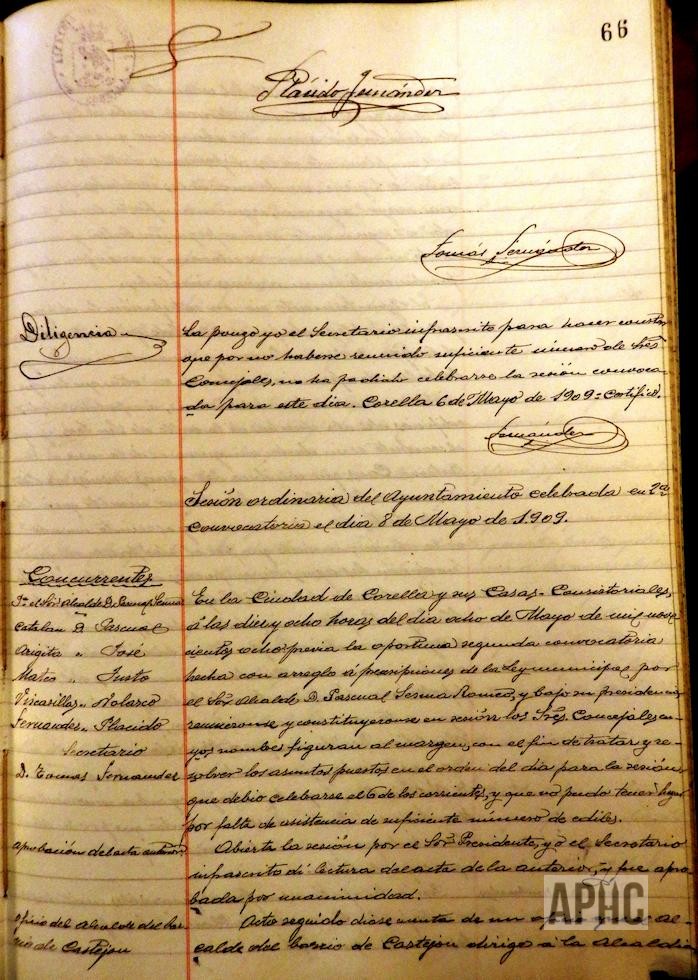 66
Plácido Fernández
Tomás Fernández
Diligencia
La pongo yo el Secretario infrascrito para hacer constar
que por no haberse reunido suficiente número de Sres.
Concejales, no ha podido celebrarse la sesión convoca-
da para este dia. Corella 6 de Mayo de 1909 = Certifico.
Fernández
Sesión ordinaria del Ayuntamiento celebrada en 2ª
convocatoria el dia 8 de Mayo de 1.909.
Concurrentes
el Sor. Alcalde D. Pascual Sesma
Catalan D. Pascual
Argita " José
Mateo " Justo
Virasillas " Nolasco
Fernandez " Placido
Secretario
D. Tomas Fernandez
En la Ciudad de Corella y sus Casas-Consistoriales,
á las diez y ocho horas del dia ocho de Mayo de mil nove-
cientos ocho previa la oportuna segunda convocatoria
hecha con arreglo á prescripciones de la Ley municipal por
el Sor. Alcalde D. Pascual Sesma Romeo, y bajo su presidencia
reunieronse y constituyeronse en sesión los Sres. Concejales cu-
yos nombres figuran al margen, con el fin de tratar y re-
solver los asuntos puestos en el orden del dia para la sesión
que debió celebrarse el 6 de los corrientes, y que no pudo tener lugar
por falta de asistencia de suficiente número de ediles.
aprobación del acta anterior
Abierta la sesión por el Sor. Presidente, yo el Secretario
infrascrito di lectura del acta de la anterior, y fue apro-
bada por unanimidad.
oficio del Alcalde del bar-
rio de Castejon
Acto seguido diose cuenta de un oficio Al-
calde del barrio de Castejon dirige á la Alcaldia
APHC